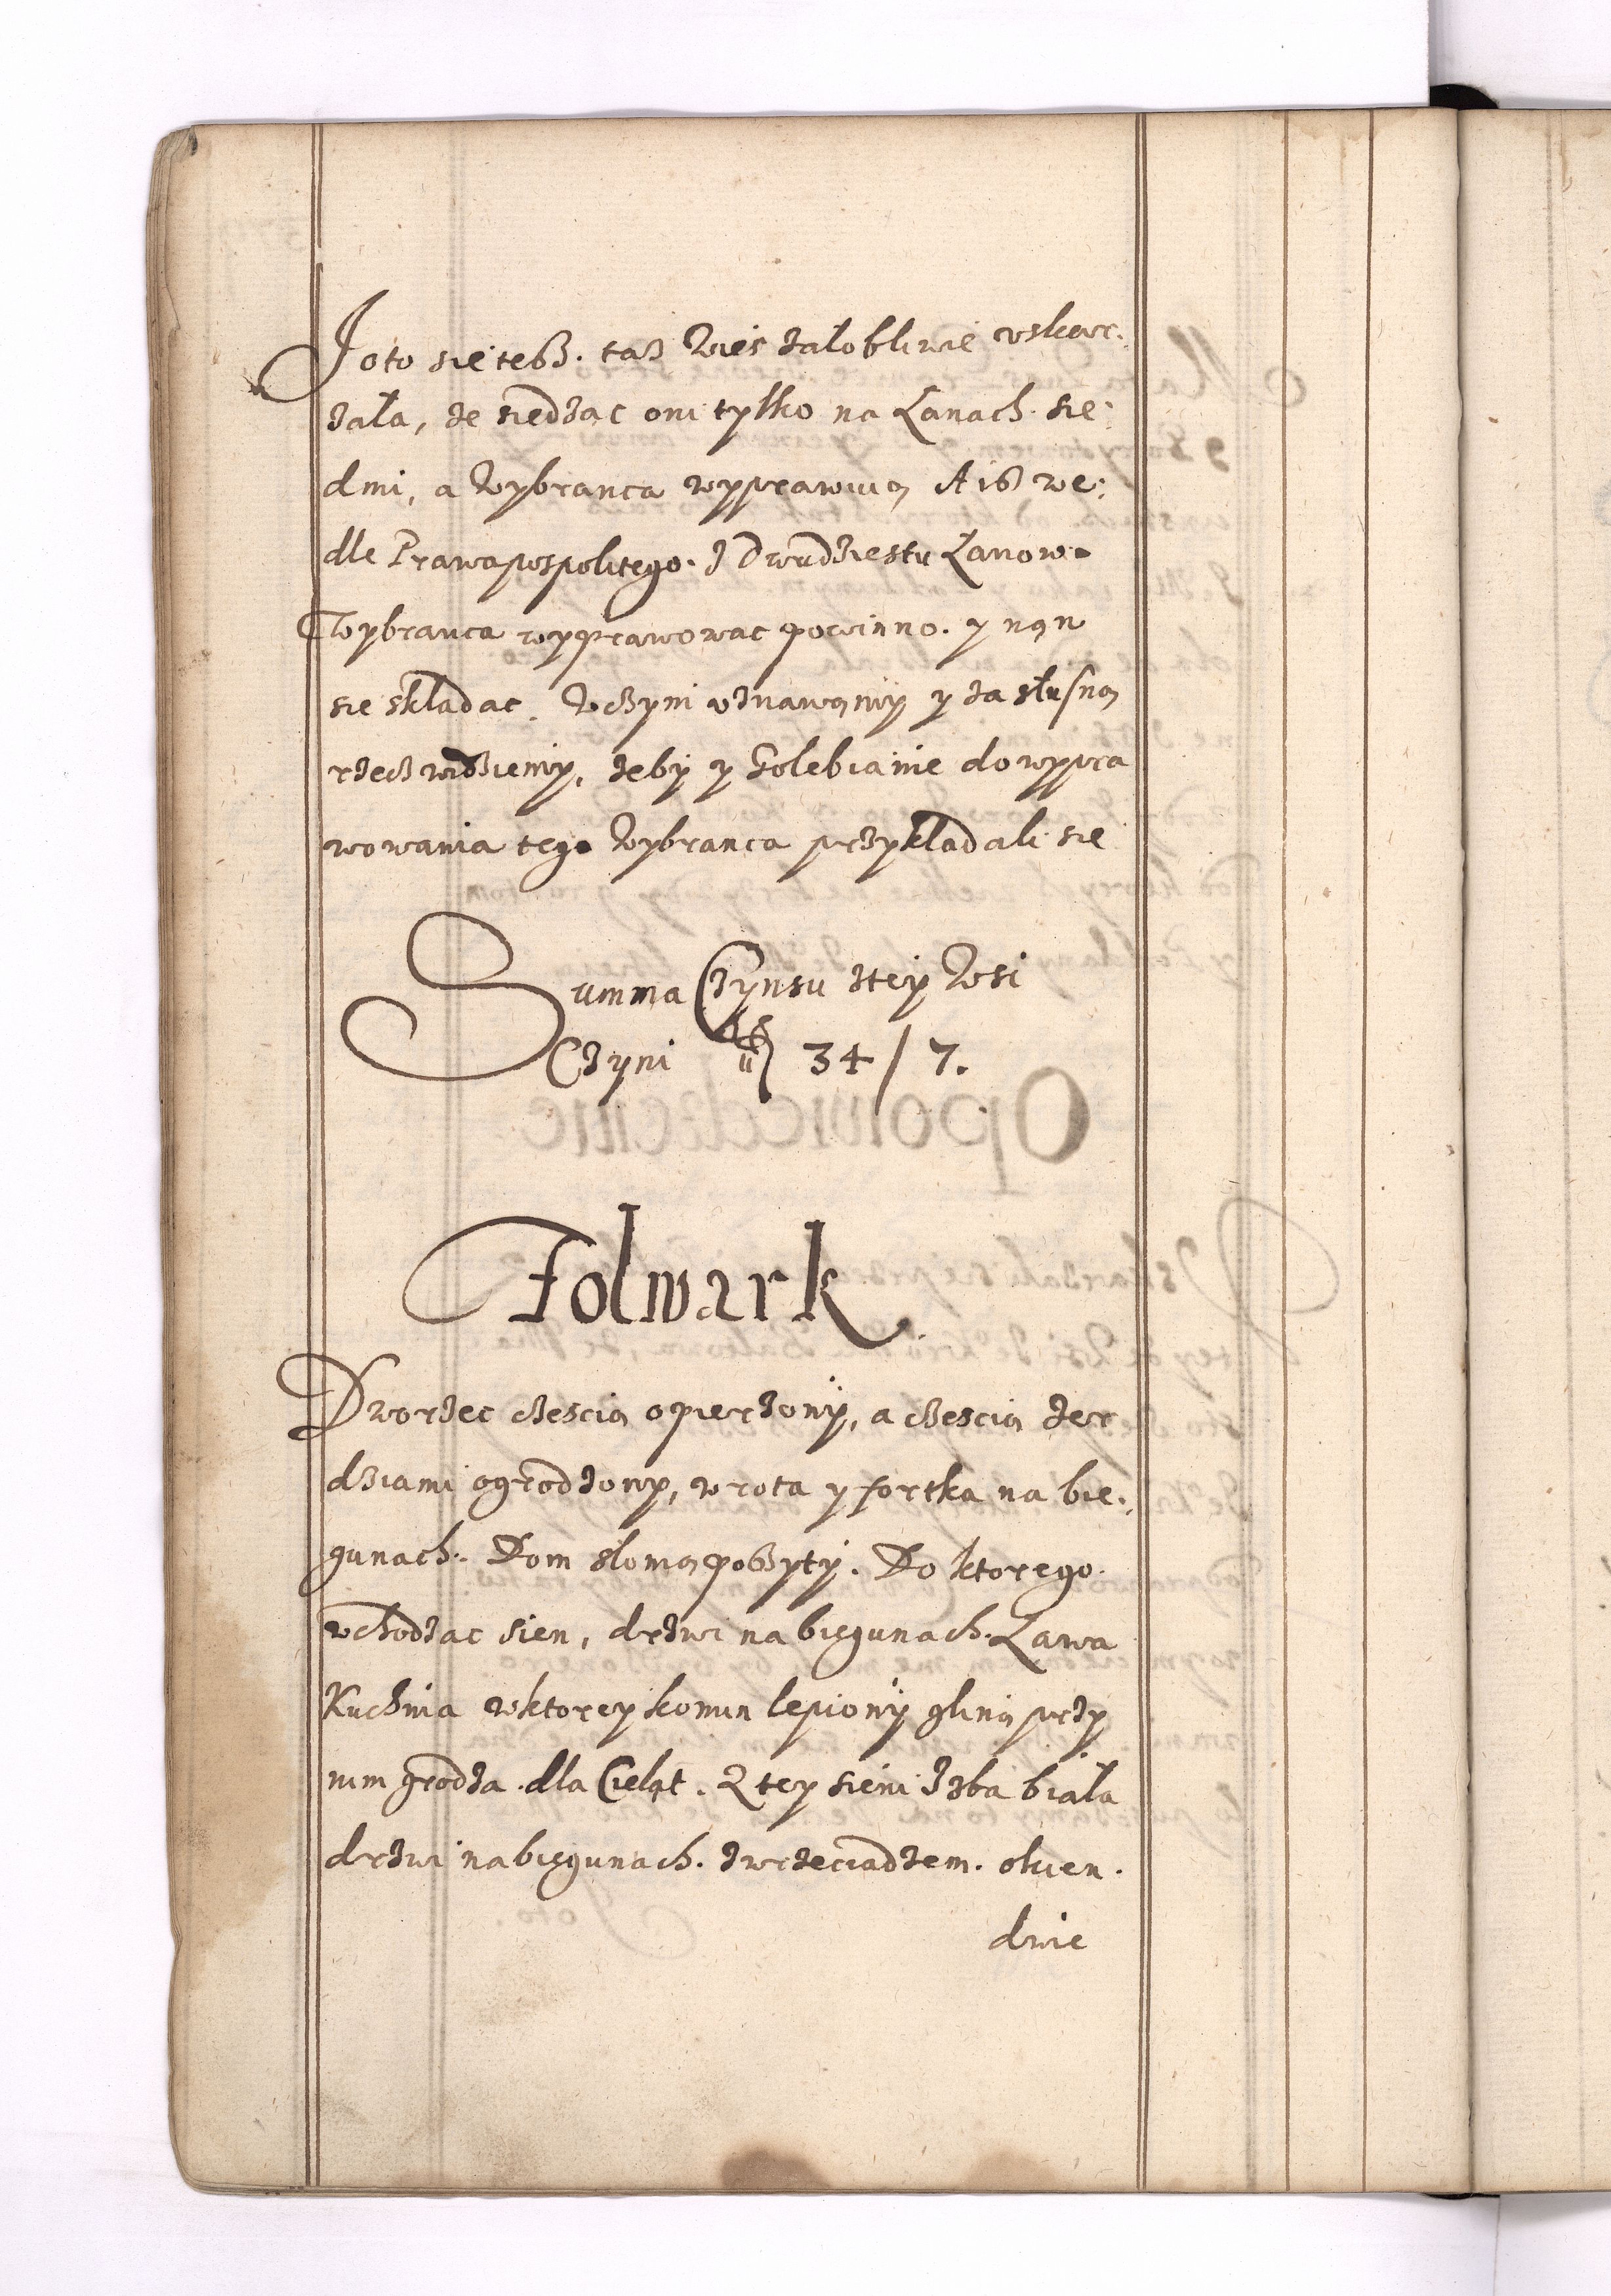 Joto sie tesz. tasz Wies załobliwie vskar:
zała, ze siedzac oni tylko na Łanach sie:
dmi, a Wybranca wyprawuią A isz we:
dle Prawa pospolitego. z Dwudziestu Łanow.
Wybranca wyprawowac powinno. y nan
sie składac. Wczym vznawamy y za słusną
rzecz widziemy, zeby y Golebianie do wypra
wowania tego Wybranca przykładali sie
Summa Czynsu ztey Wsi
Czyni 34/7.
Folwark
Dworzec czescią opierzony, a czescią zer
dziami ogrodzony, wrota y fortka na bie:
gunach. Dom słomą poszyty. Do ktorego
wchodzac sien, drzwi na biegunach. Ława
Kuchnia wktorey komin lepiony gliną przy
nim grodza dla Cieląt. Z tey sieni Izba biała
drzwi na biegunach. zwrzeciadzem. okien.
dwie